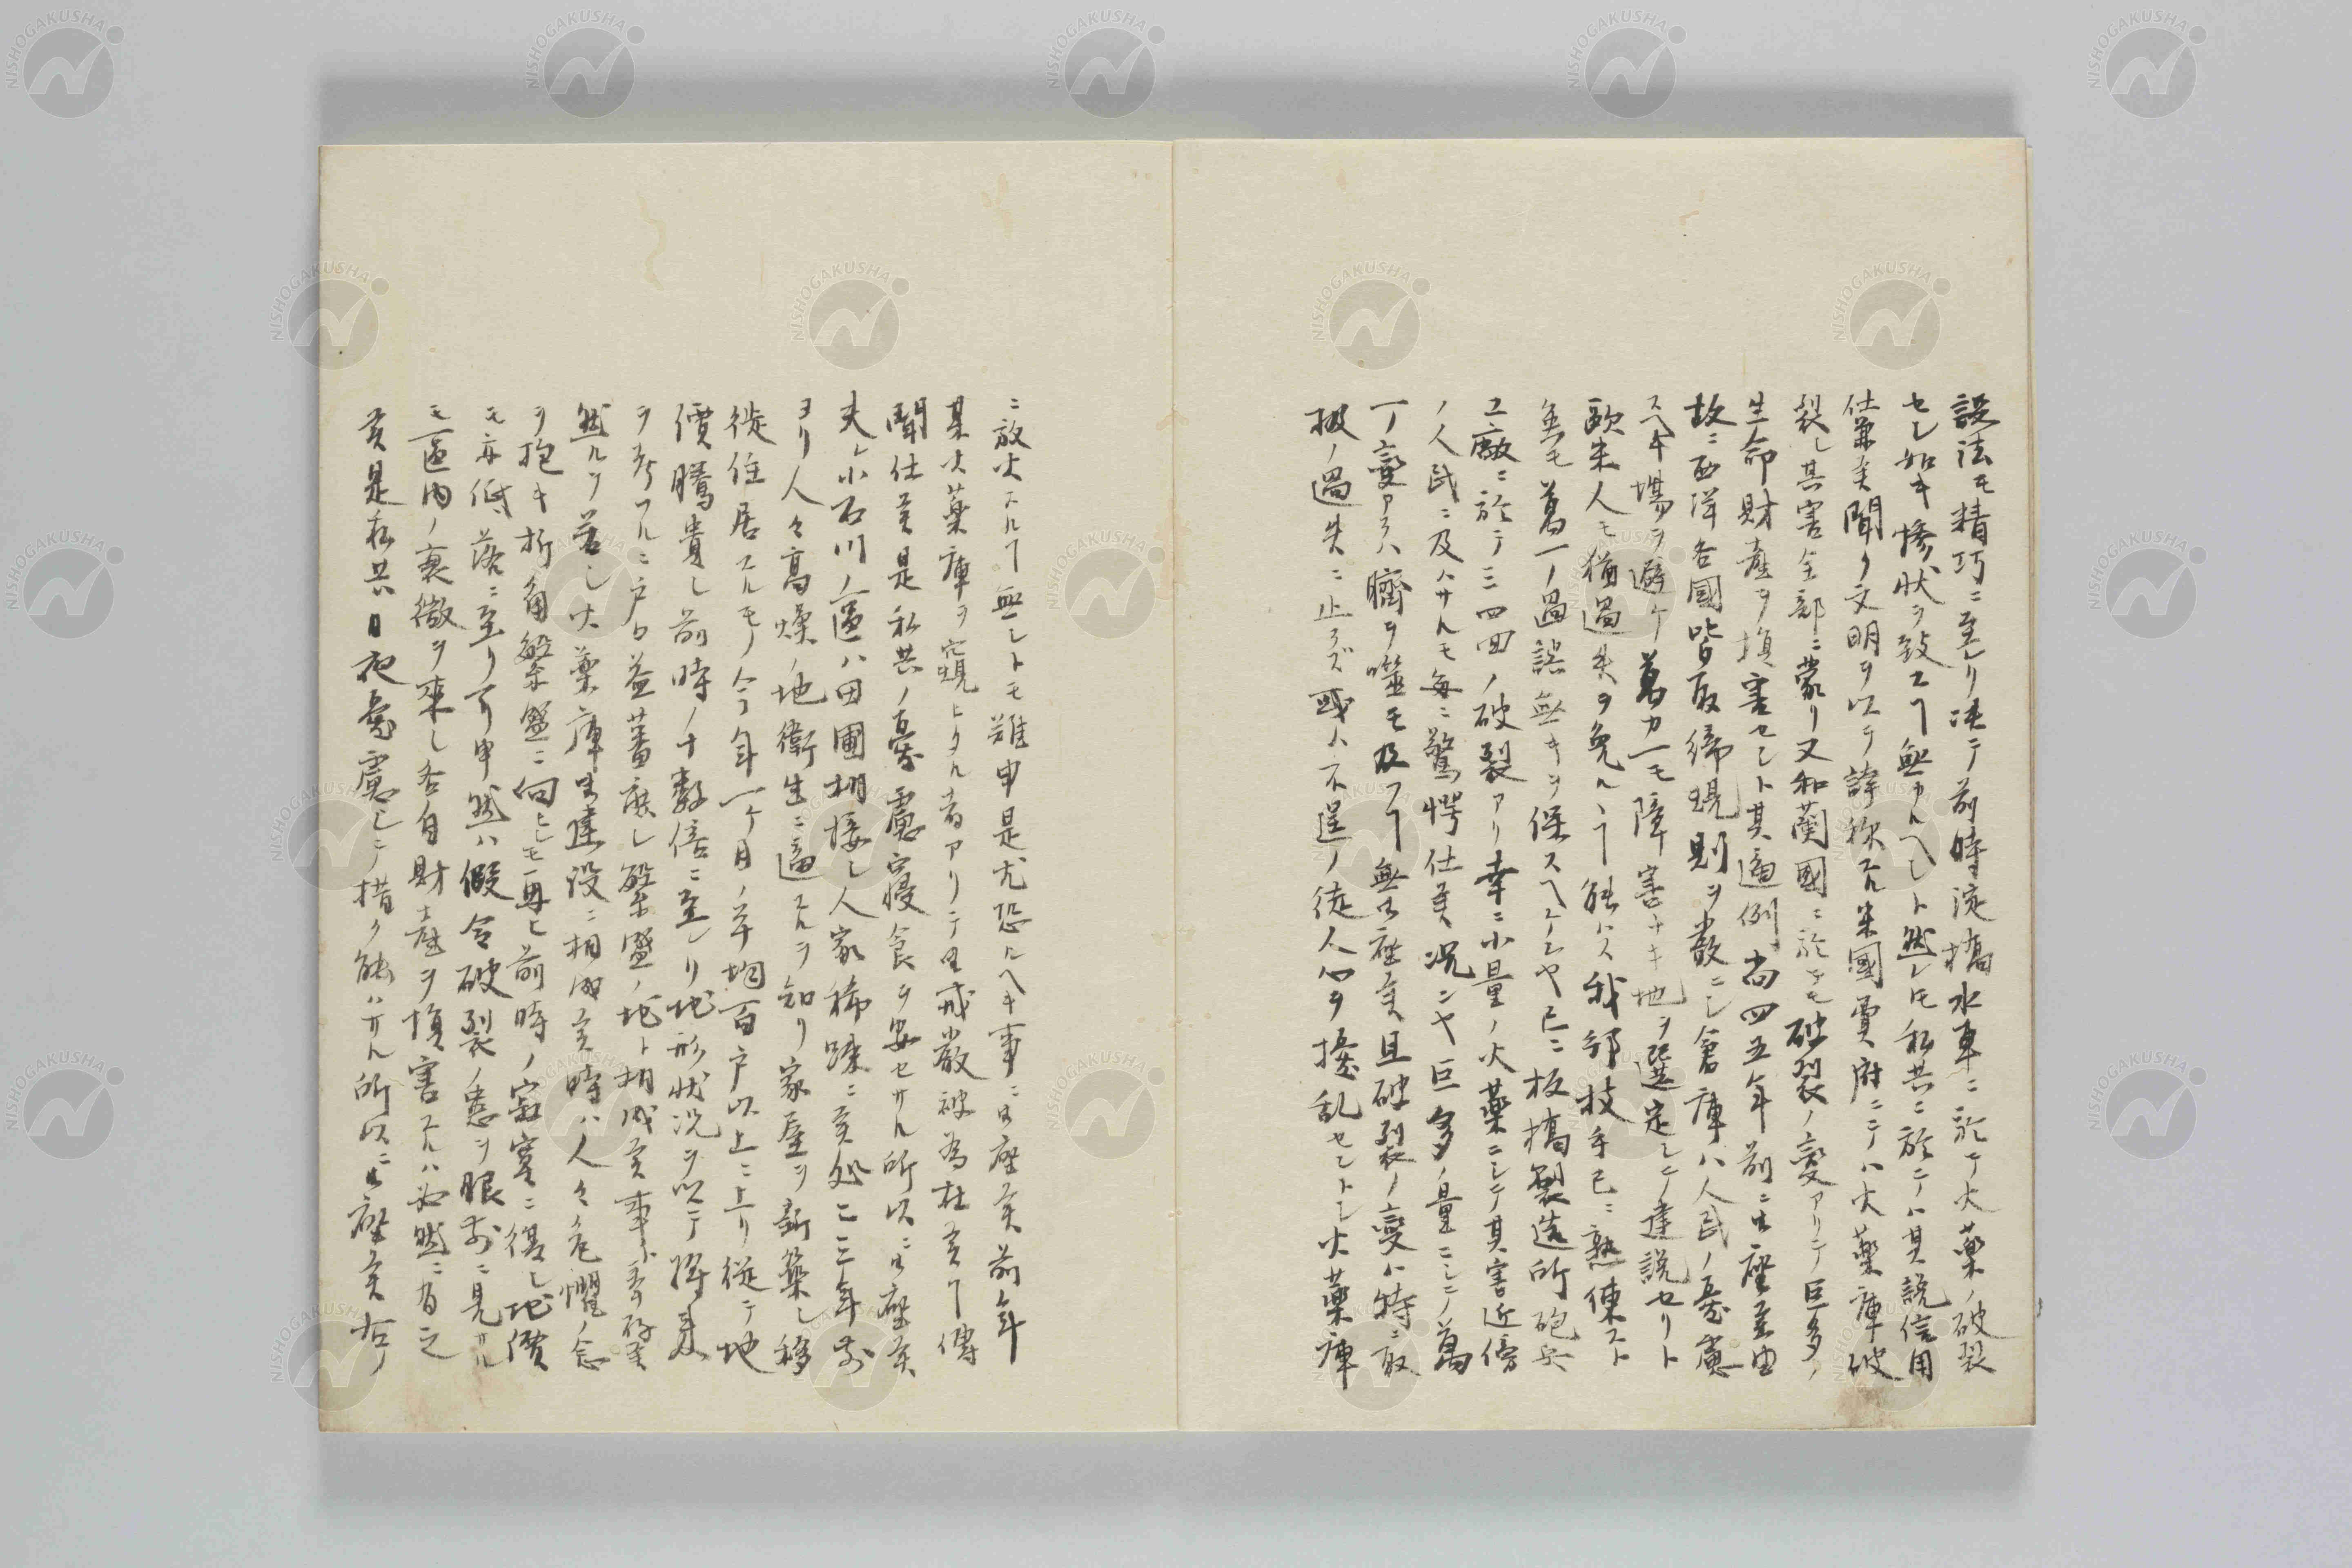 設法モ精巧ニ至レリ決テ前時淀橋水車ニ於テ火薬ノ破裂
セシ如キ惨状ヲ致スヿ無カルヘシト然レ𪜈私共ニ於テハ其説信用
仕兼候聞ク文明ヲ以テ誇称スル米國賈府ニテハ火薬庫破
裂シ其害全部ニ蒙リ又和蘭國ニ於テモ破裂ノ変アリテ巨多ノ
生命財産ヲ損害セシト其適例尚四五年前ニ御座候由
故ニ西洋各國皆取締規則ヲ厳ニシ倉庫ハ人民ノ憂慮
スヘキ場ヲ避ケ萬カ一モ障害ナキ地ヲ選定シテ建設セリト
欧米人モ猶過失ヲ免ルヽヿ能ハス我邦技手已ニ熟練スト
雖モ萬一ノ過誤無キヲ保スヘケンヤ已ニ板橋製造所砲兵
工廠ニ於テ三四回ノ破裂アリ幸ニ小量ノ火薬ニシテ其害近傍
ノ人民ニ及ハサルモ毎ニ驚愕仕候況ンヤ巨多ノ量ニシテ萬
一ノ変アラハ臍ヲ噬モ及フヿ無御座候且破裂ノ変ハ特ニ取
扱ノ過失ニ止ラズ或ハ不逞ノ徒人心ヲ擾乱セントシ火薬庫
ニ放火スルヿ無シトモ難申是尤恐ルヘキ事ニ御座候前年
某火薬庫ヲ窺ヒタル者アリテ御戒厳被為在候ヿ傳
聞仕候是私共ノ憂慮寝食ヲ安セサル所以ニ御座候
夫レ小石川ノ區ハ田圃相接シ人家稀疎ニ候処二三年前
ヨリ人々高燥ノ地衛生ニ適スルヲ知リ家屋ヲ新築シ移
徙住居スルモノ今年一ケ月ノ平均百戸以上ニ上リ従テ地
價騰貴シ前時ノ十数倍ニ至レリ地形状況ヲ以テ将来
ヲ考フルニ戸口益蕃庶シ繁盛ノ地ト相成候事ト奉存候
然ルヲ若シ火薬庫御建設ニ相成候時ハ人々危懼ノ念
ヲ抱キ折角繁盛ニ向ヒシモ再ヒ前時ノ寂寞ニ復シ地價
モ亦低落ニ至リ可申然ハ假令破裂ノ患ヲ眼前ニ見サル
モ區内ノ衰微ヲ来シ各自財産ヲ損害スルハ必然ニ有之
候是私共日夜憂慮シテ措ク能ハサル所以ニ御座候右ノ